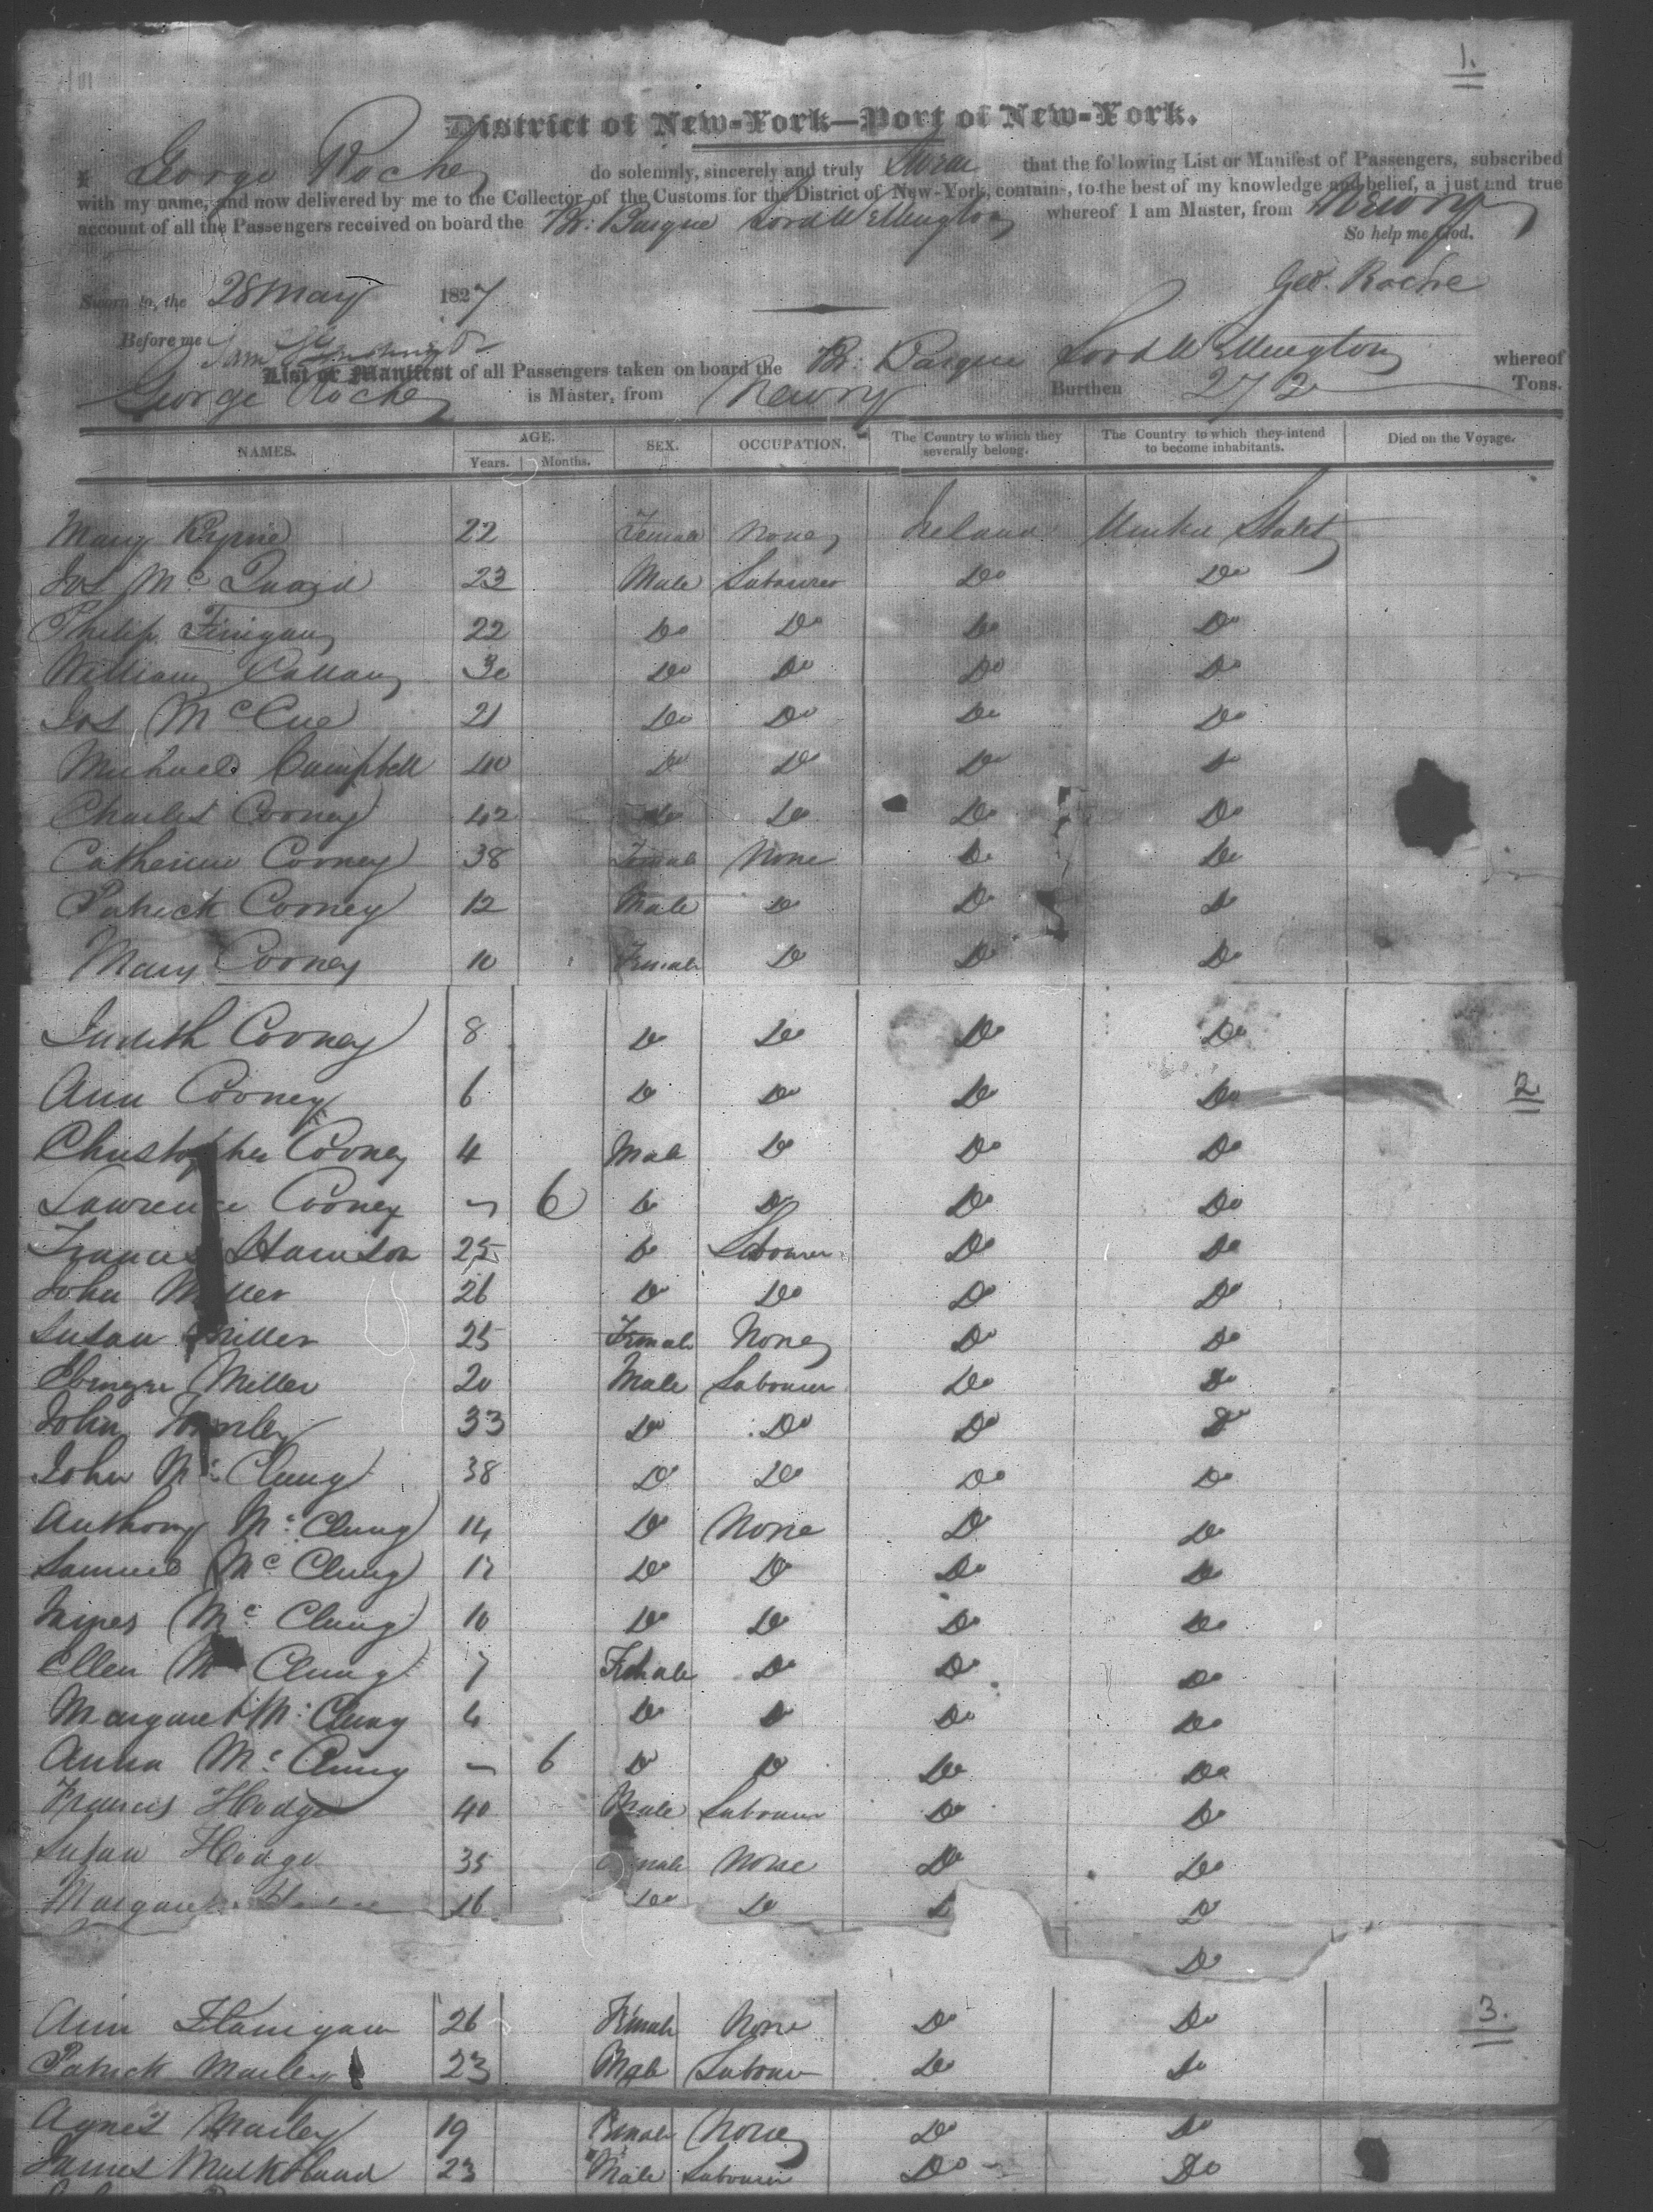 1.
District of New-York—Port of New-York.
I George Roche do solemnly, sincerely and truly Swear that the following List or Manifest of Passengers, subscribed
with my name, and now delivered by me to the Collector of the Customs for the District of New-York, contains, to the best of my knowledge and belief, a just and true
account of all the Passengers received on board the Br: Barque Lord Wellington whereof I am Master, from Newry
So help me God.
Geo. Roche
Sworn to, the 28 May 1827
Before me
List or Manifest of all Passengers taken on board the Br: Barque Lord Wellington whereof
George Roche is Master, from Newry Burthen 272 Tons.
NAMES. AGE. SEX. OCCUPATION. The Country to which they severally belong. The Country to which they intend to become inhabitants. Died on the Voyage.
Years. Months.
Mary Byrne 22 Female None Ireland United States
Jos Mc Quaid 23 Male Labourer Do Do
Philip Finigan 22 Do Do Do Do
William Callan 30 Do Do Do Do
Jos McCue 21 Do Do Do Do
Michael Campbell 40 Do Do Do Do
Charles Cooney 42 Do Do Do Do
Catherine Cooney 38 Female None Do Do
Patrick Cooney 12 Male Do Do Do
Mary Cooney 10 Female Do Do Do
Judith Cooney 8 Do Do Do Do
Ann Cooney 6 Do Do Do Do
2
Christopher Cooney 4 Male Do Do Do
Lawrence Cooney - 6 Do Do Do Do
Francis 25 Do Labourer Do Do
John Miller 26 Do Do Do Do
Susan Miller 25 Female None Do Do
Ebenezer Miller 20 Male Labourer Do Do
John 33 Do Do Do Do
John Mc Clung 38 Do Do Do Do
Anthony Mc Clung 14 Do None Do Do
Samuel Mc Clung 12 Do Do Do Do
James Mc Clung 10 Do Do Do Do
Ellen Mc Clung 7 Female Do Do Do
Margaret Mc Clung 4 Do Do Do Do
Anna Mc Clung - 6 Do Do Do Do
Francis Hodge 40 Male Labourer Do Do
Susan Hodge 35 Female None Do Do
Margaret 16 Do Do Do Do
Do
3.
Ann Flanigan 26 Female None Do Do
Patrick Marley 23 Male Labourer Do Do
Agnes Marley 19 Female None Do Do
James 23 Male Labourer Do Do